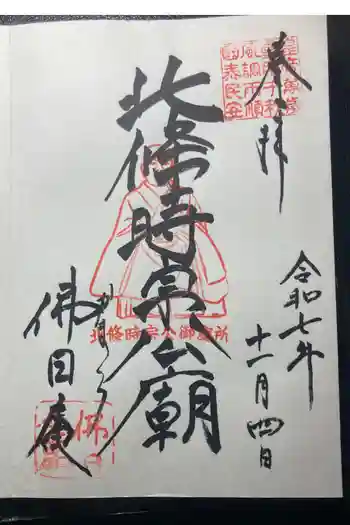 奉拝
令和七年
十一月四日
北條時宗公廟
北條時宗公御廟所
佛日庵